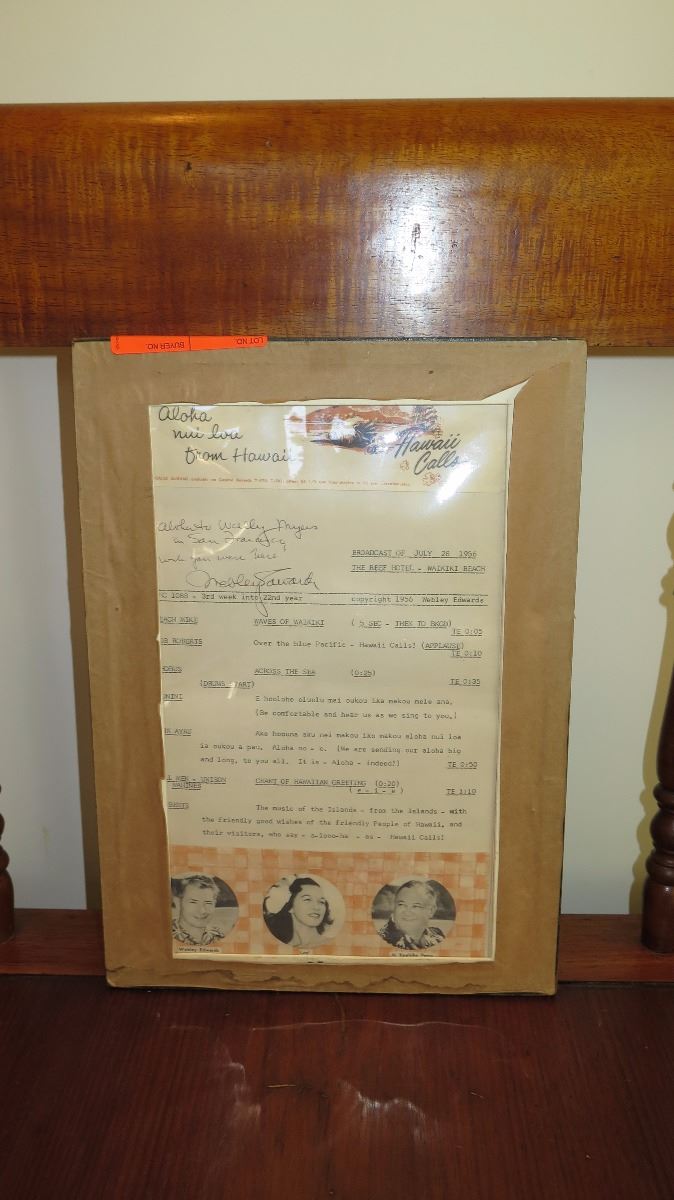 LOT NO.
BUYER NO.
Aloha
nui loa
from Hawaii
Hawaii
Calls
Aloha to
in San Francisco
wish you were here
Webley Edwards
BROADCAST OF JULY 28 1956
THE REEF HOTEL - WAIKIKI BEACH
1088 - 3rd week into 22nd year copyright 1956 Webley Edwards
WAVES OF WAIKIKI ( 5 SEC - THEN TO BKGD)
TE 0:05
ROBERTS Over the blue Pacific - Hawaii Calls! (APPLAUSE)
TE 0:10
ACROSS THE SEA (0:25)
TE 0:35
(DRUMS START)
E hoolohe oluolu mai oukou ika makou mele ana,
(Be comfortable and hear us as we sing to you.)
Ake hoouna aku nei makou iko makou aloha nui loa
ia oukou a pau. Aloha no - e. (We are sending our aloha big
and long, to you all. It is - Aloha - indeed!)
TE 0:50
MEN - UNISON CHANT OF HAWAIIAN GREETING (0:20)
WAHINES ( e - i - e )
TE 1:10
The music of the Islands - from the Islands - with
the friendly good wishes of the friendly People of Hawaii, and
their visitors, who say - a-looo-ha - as - Hawaii Calls!
Webley Edwards